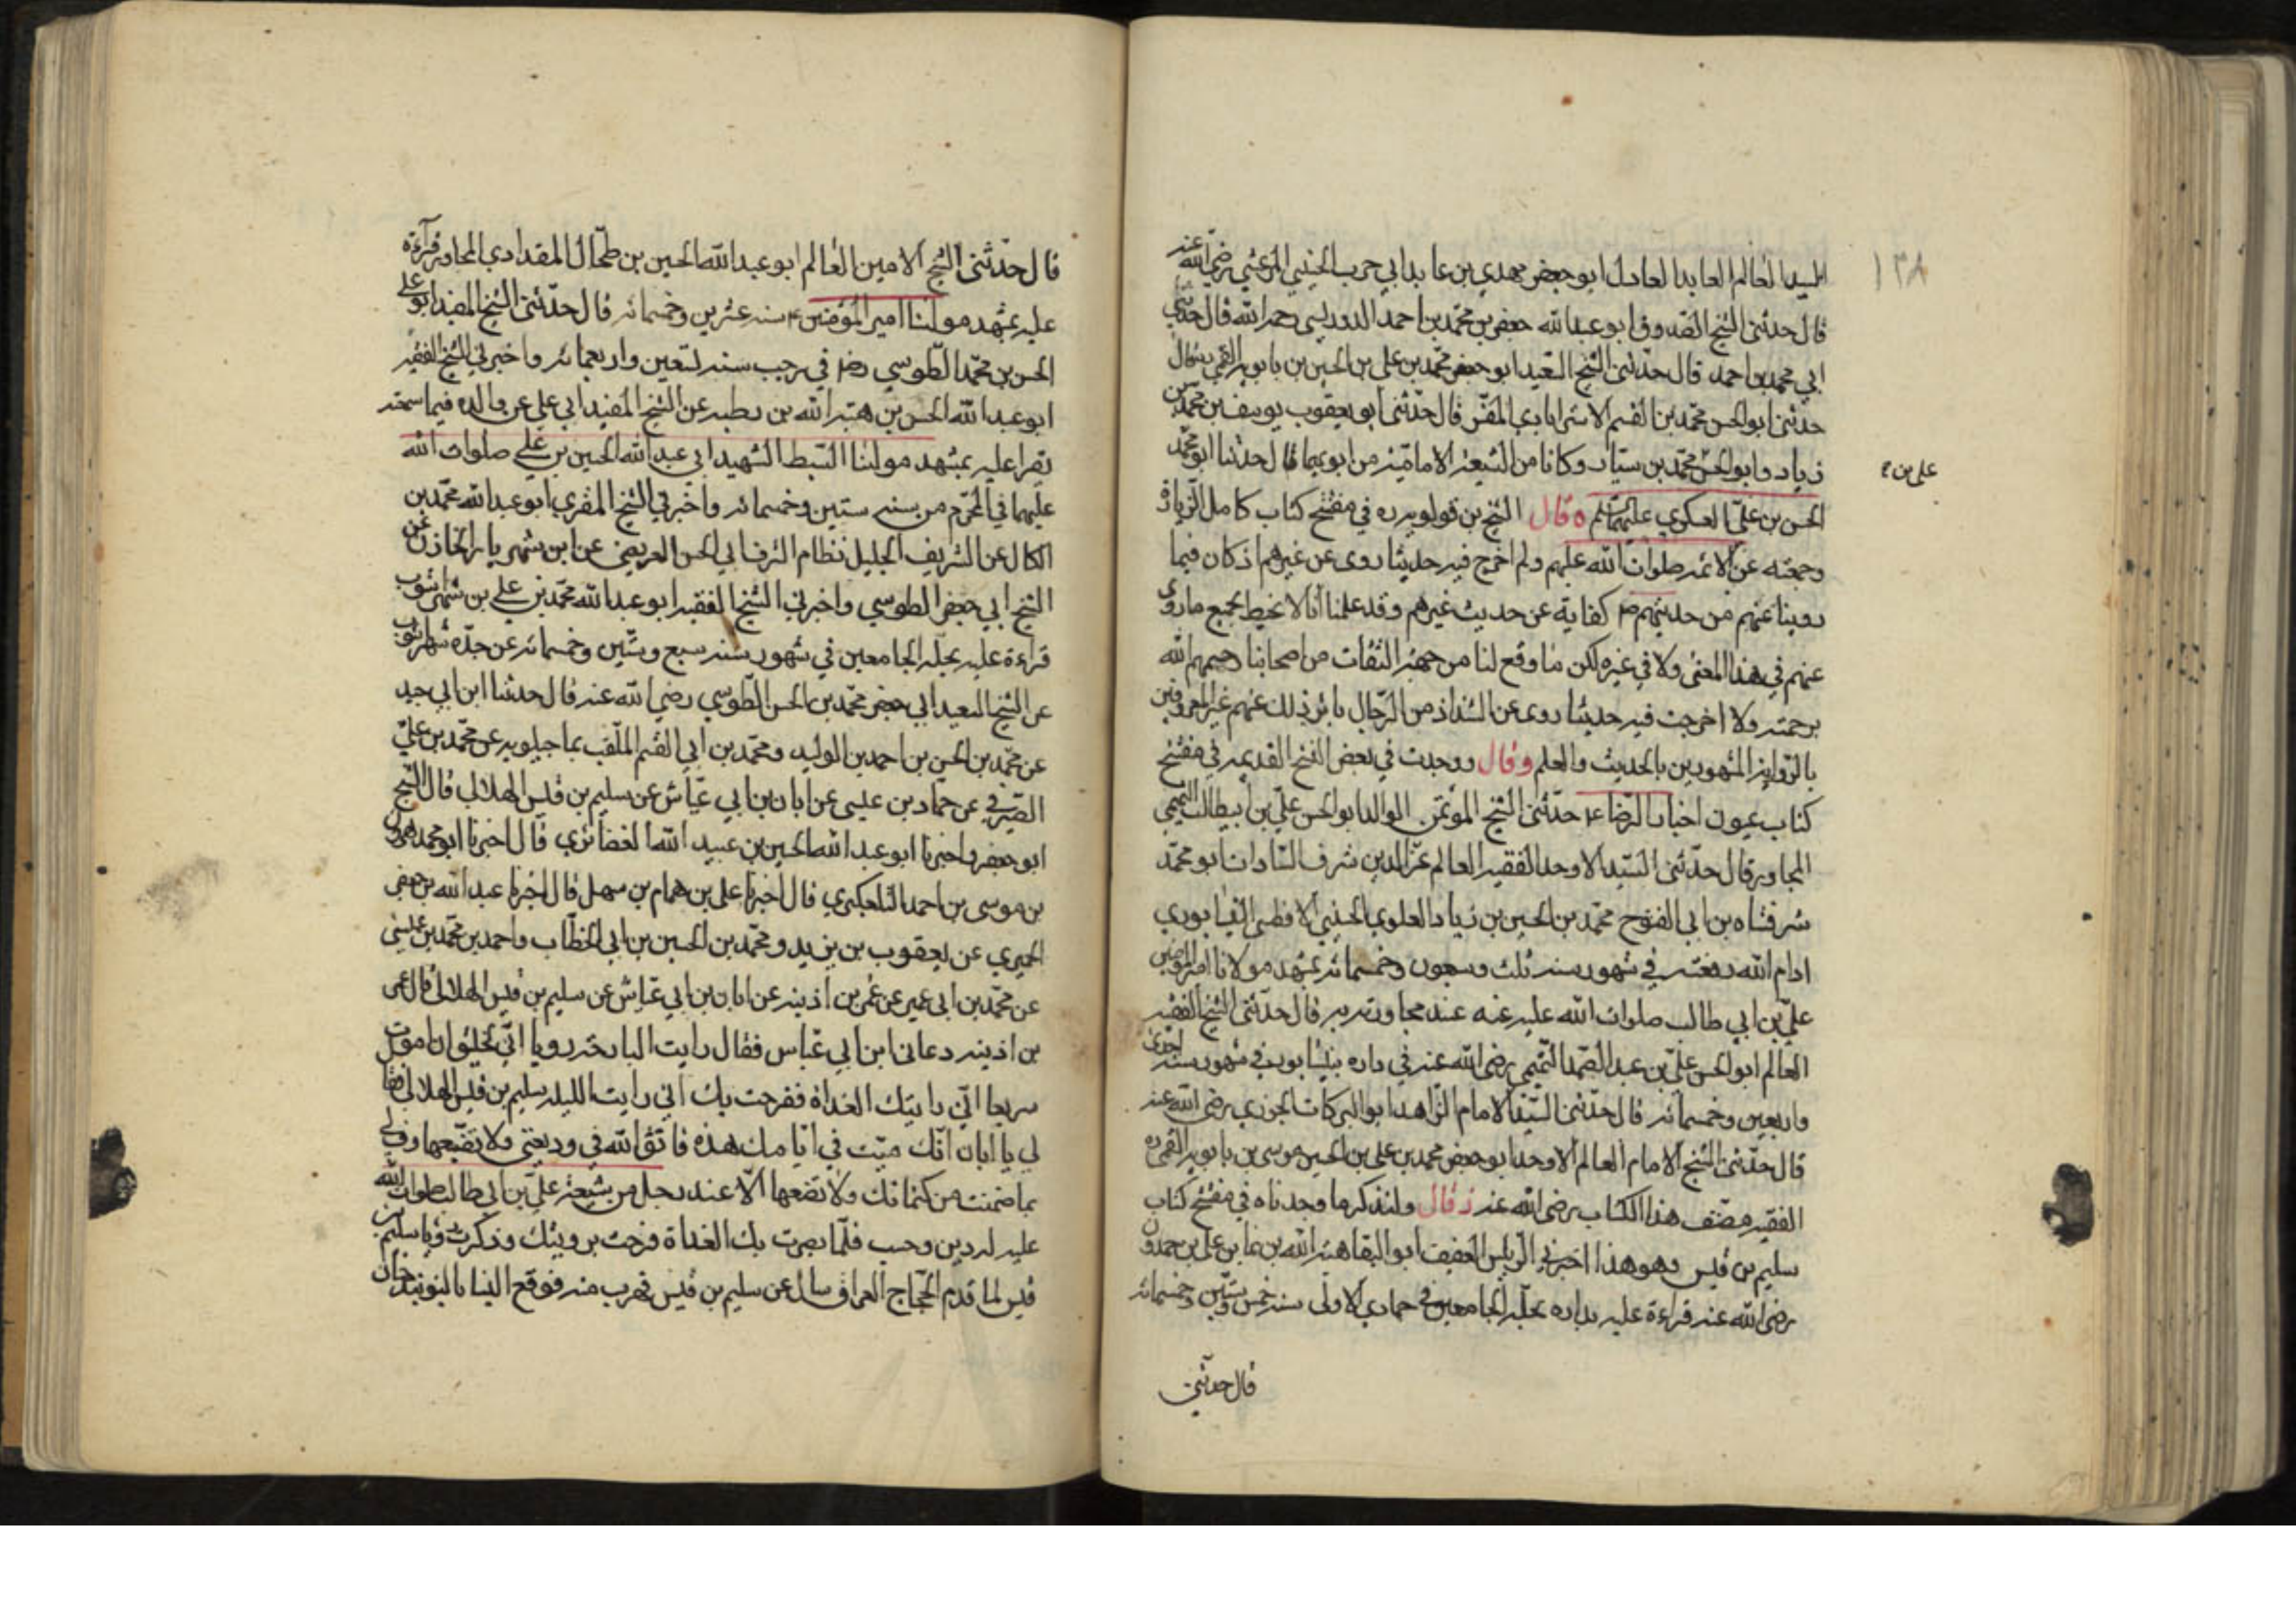 السيد العالم العابد العادل ابو جعفر مهدي بن عابد ابي حرب الحسيني المرعشي رضي الله عنه
قال حدثني الشيخ الصدوق ابو عبد الله جعفر بن محمد بن احمد الدوريستي رحمه الله قال حدثني
ابي محمد بن احمد قال حدثني الشيخ السعيد ابو جعفر محمد بن علي بن الحسين بن بابويه القمي ره قال
حدثني ابو الحسن محمد بن القسم الاسترابادي المفسر قال حدثني ابو يعقوب يوسف بن محمد بن
زياد وابو الحسن محمد بن سيار وكانا من الشيعة الامامية من ابويهما قالا حدثنا ابو محمد
علي بن
الحسن بن علي العسكري عليهما السلم ه قال الشيخ بن قولويه ره في مفتتح كتاب كامل الزيارة
وجمعته عن الائمه صلوات الله عليهم ولم اخرج فيه حديثا روى عن غيرهم اذ كان فيما
روينا عنهم من حديثهم ص كفاية عن حديث غيرهم وقد علمنا انا لا نحيط بجميع ما روي
عنهم في هذا المعنى ولا في غيره لكن ما وقع لنا من جهة الثقات من اصحابنا رحمهم الله
برحمته ولا اخرجت فيه حديثا روى عن الشذاذ من الرجال ياثر ذلك عنهم غير المعروفين
بالرواية المشهورين بالحديث والعلم وقال ووجدت في بعض النسخ القديمه في مفتتح
كتاب عيون اخبار الرضا ع حدثني الشيخ المؤتمن الوالد ابو الحسن علي بن ابيطالب التميمي
المجاور قال حدثني السيد الاوحد الفقيه العالم عز الدين شرف السادات ابو محمد
شرفشاه بن ابي الفتوح محمد بن الحسين بن زياد العلوي الحسيني الافطسي النيسابوري
ادام الله رفعته في شهور سنه ثلث وسبعون وخمسمائه بمشهد مولانا امير المؤمنين
علي بن ابي طالب صلوات الله عليه عنه عند مجاورته به قال حدثني الشيخ الفقيه
العالم ابو الحسن علي بن عبد الصمد التميمي رضي الله عنه في داره بنيسابور في شهور سنه احدى
واربعين وخمسمائه قال حدثني السيد الامام الزاهد ابو البركات الجوزي رضي الله عنه
قال حدثني الشيخ الامام العالم الاوحد ابو جعفر محمد بن علي بن الحسين موسى بن بابويه القمي ره
الفقيه مصنف هذا الكتاب رضي الله عنه قال ولنذكر ما وجدناه في مفتتح كتاب
سليم بن قيس وهو هذا اخبرني الرئيس العفيف ابو البقا هبة الله بن نما بن علي بن حمدون
رضي الله عنه قراءة عليه بداره بحلة الجامعين في جمادي الاولى سنه خمس وستين وخمسمائه
قال حدثني
قال حدثني الشيخ الامين العالم ابو عبد الله الحسين بن طحال المقدادي المجاور قراءة
عليه بمشهد مولانا امير المؤمنين ع سنه عشرين وخمسمائه قال حدثني الشيخ المفيد ابو علي
الحسن بن محمد الطوسي رض في رجب سنه تسعين واربعمائه واخبرني الشيخ الفقيه
ابو عبد الله الحسن بن هبة الله بن رطبه عن الشيخ المفيد ابي علي عن والده فيما سمعته
يقرا عليه بمشهد مولنا السبط الشهيد ابي عبد الله الحسين بن علي صلوات الله
عليهما في المحرم من سنه ستين وخمسمائه واخبرني الشيخ المقري ابو عبد الله محمد بن
الكال عن الشريف الجليل نظام الشرف ابي الحسن العريضي عن ابن شهريار الخازن عن
الشيخ ابي جعفر الطوسي واخبرني الشيخ الفقيه ابو عبد الله محمد بن علي بن شهراشوب
قراءة عليه بحلة الجامعين في شهور سنه سبع وستين وخمسمائه عن جده شهراشوب
عن الشيخ السعيد ابي جعفر محمد بن الحسن الطوسي رضي الله عنه قال حدثنا ابن ابي جيد
عن محمد بن الحسن بن احمد بن الوليد ومحمد بن ابي القسم الملقب بماجيلويه عن محمد بن علي
الصيرفي عن حماد بن عيسى عن ابان بن ابي عياش عن سليم بن قيس الهلالي قال الشيخ
ابو جعفر واخبرنا ابو عبد الله الحسين بن عبيد الله الغضائري قال اخبرنا ابو محمد هرون
بن موسى بن احمد التلعكبري قال اخبرنا علي بن همام بن سهل قال اخبرنا عبد الله بن جعفر
الحميري عن يعقوب بن يزيد ومحمد بن الحسين بن ابي الخطاب واحمد بن محمد بن عيسى
عن محمد بن ابي عمير عن عمر بن اذينه عن ابان بن ابي عياش عن سليم بن قيس الهلالي قال عمر
بن اذينه دعاني ابن ابي عياش فقال رايت البارحة رويا اني لخليق ان اموت
سريعا اني رايتك الغداة ففرحت بك اني رايت الليله سليم بن قيس الهلالي فقال
لي يا ابان انك ميت في ايامك هذه فاتق الله في وديعتي ولا تضيعها وف لي
بما ضمنت من كتمانك ولا تضعها الا عند رجل من شيعة علي بن ابي طالب صلوات الله
عليه له دين وحسب فلما بصرت بك الغداة فرحت برويتك وذكرت رؤيا سليم بن
قيس لما قدم الحجاج العراق سال عن سليم بن قيس فهرب منه فوقع الينا بالنوبندجان